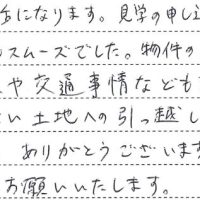 話になります。見学の申し込
スムーズでした。物件の
や交通事情なども
い土地への引っ越し
ありがとうございます
お願いいたします。